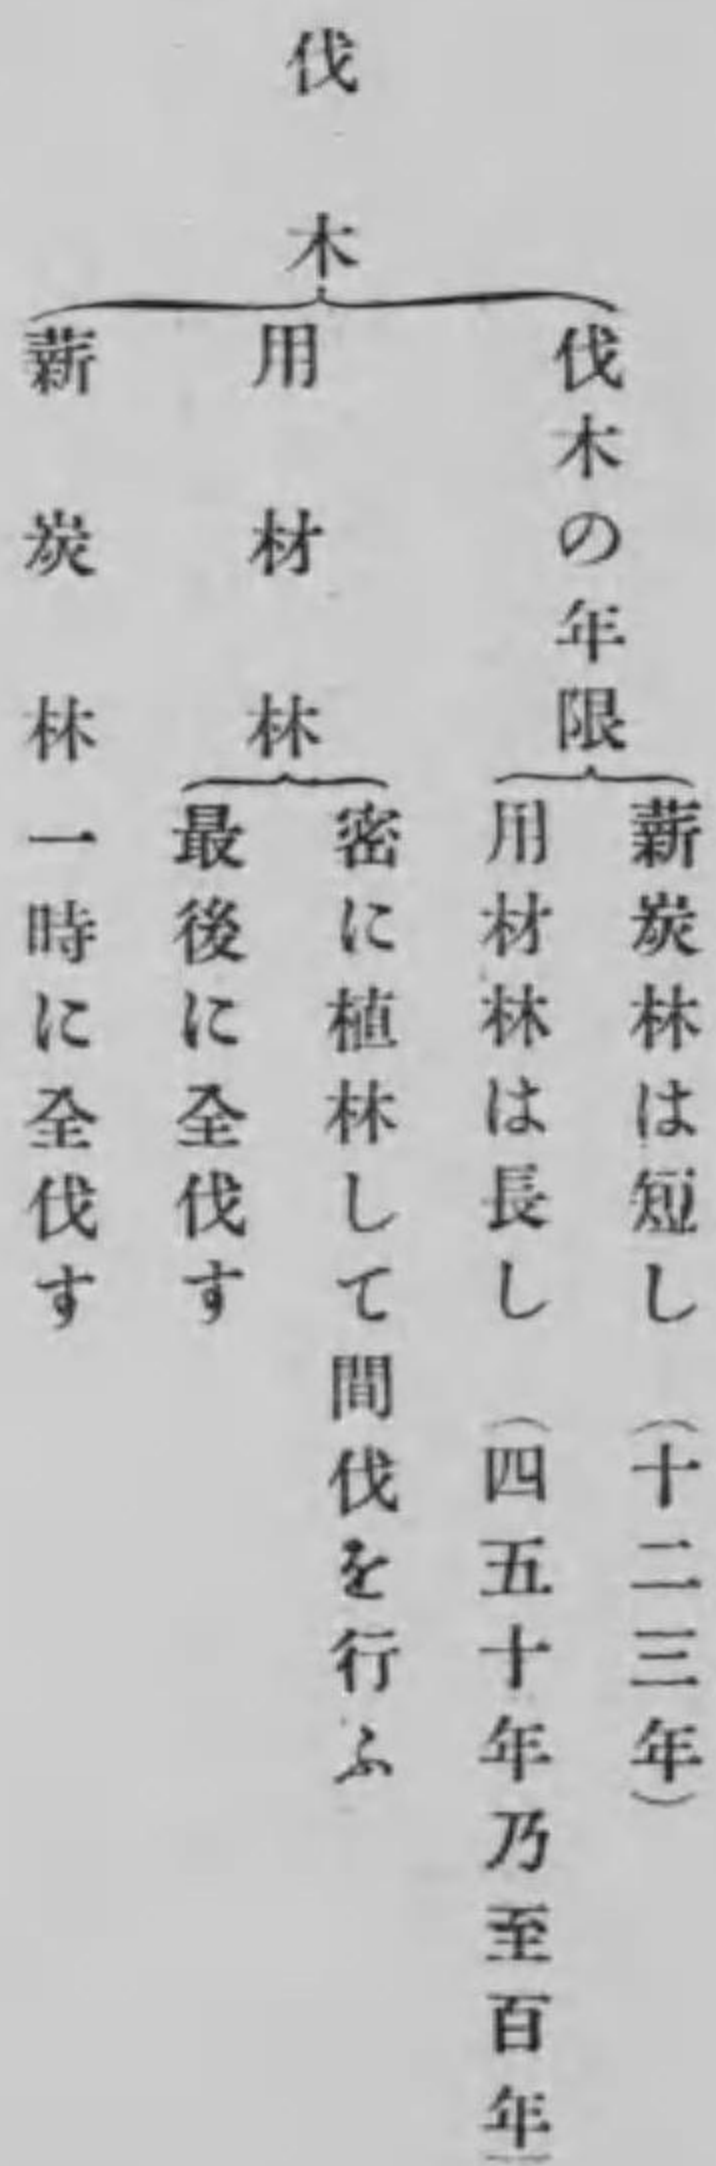 伐木
伐木の年限
薪炭林は短し（十二三年）
用材林は長し（四五十年乃至百年）
用材林
密に植林して間伐を行ふ
最後に全伐す
薪炭林一時に全伐す